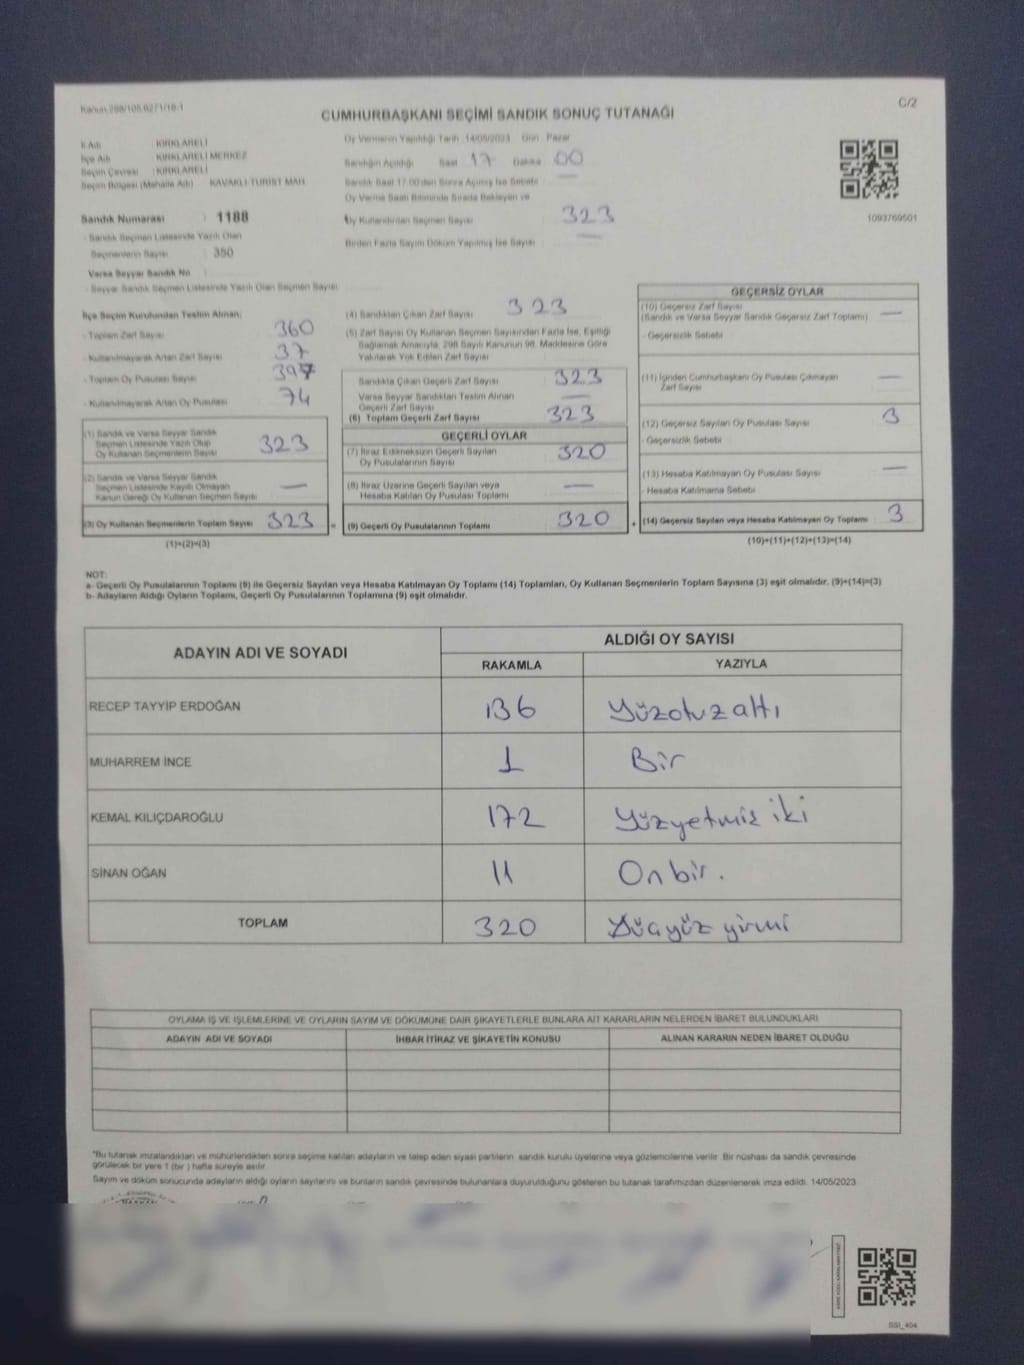 Kanun:298/105.6271/16-1
C/2
CUMHURBAŞKANI SEÇİMİ SANDIK SONUÇ TUTANAĞI
İl Adı : KIRKLARELİ
İlçe Adı : KIRKLARELİ MERKEZ
Seçim Çevresi : KIRKLARELİ
Seçim Bölgesi (Mahalle Adı) : KAVAKLI/TURİST MAH.
Sandık Numarası : 1188
- Sandık Seçmen Listesinde Yazılı Olan
Seçmenlerin Sayısı : 350
Varsa Seyyar Sandık No
- Seyyar Sandık Seçmen Listesinde Yazılı Olan Seçmen Sayısı:
Oy Vermenin Yapıldığı Tarih : 14/05/2023 Gün : Pazar
Sandığın Açıldığı Saat 17 Dakika 00
Sandık Saat 17:00'den Sonra Açılmış İse Sebebi —
Oy Verme Saati Bitiminde Sırada Bekleyen ve
Oy Kullandırılan Seçmen Sayısı 323
Birden Fazla Sayım Döküm Yapılmış İse Sayısı —
1093769501
İlçe Seçim Kurulundan Teslim Alınan;
- Toplam Zarf Sayısı 360
- Kullanılmayarak Artan Zarf Sayısı 37
- Toplam Oy Pusulası Sayısı 397
- Kullanılmayarak Artan Oy Pusulası 74
(1) Sandık ve Varsa Seyyar Sandık
Seçmen Listesinde Yazılı Olup
Oy Kullanan Seçmenlerin Sayısı 323
(2) Sandık ve Varsa Seyyar Sandık
Seçmen Listesinde Kayıtlı Olmayan
Kanun Gereği Oy Kullanan Seçmen Sayısı —
(3) Oy Kullanan Seçmenlerin Toplam Sayısı 323 =
(1)+(2)=(3)
(4) Sandıktan Çıkan Zarf Sayısı 323
(5) Zarf Sayısı Oy Kullanan Seçmen Sayısından Fazla İse, Eşitliği
Sağlamak Amacıyla, 298 Sayılı Kanunun 98. Maddesine Göre
Yakılarak Yok Edilen Zarf Sayısı
Sandıkta Çıkan Geçerli Zarf Sayısı 323
Varsa Seyyar Sandıktan Teslim Alınan
Geçerli Zarf Sayısı —
(6) Toplam Geçerli Zarf Sayısı 323
GEÇERLİ OYLAR
(7) İtiraz Edilmeksizin Geçerli Sayılan
Oy Pusulalarının Sayısı 320
(8) İtiraz Üzerine Geçerli Sayılan veya
Hesaba Katılan Oy Pusulası Toplamı —
(9) Geçerli Oy Pusulalarının Toplamı 320 +
GEÇERSİZ OYLAR
(10) Geçersiz Zarf Sayısı
(Sandık ve Varsa Seyyar Sandık Geçersiz Zarf Toplamı) —
- Geçersizlik Sebebi
(11) İçinden Cumhurbaşkanı Oy Pusulası Çıkmayan
Zarf Sayısı —
(12) Geçersiz Sayılan Oy Pusulası Sayısı 3
- Geçersizlik Sebebi
(13) Hesaba Katılmayan Oy Pusulası Sayısı —
- Hesaba Katılmama Sebebi
(14) Geçersiz Sayılan veya Hesaba Katılmayan Oy Toplamı 3
(10)+(11)+(12)+(13)=(14)
NOT:
a- Geçerli Oy Pusulalarının Toplamı (9) ile Geçersiz Sayılan veya Hesaba Katılmayan Oy Toplamı (14) Toplamları, Oy Kullanan Seçmenlerin Toplam Sayısına (3) eşit olmalıdır. (9)+(14)=(3)
b- Adayların Aldığı Oyların Toplamı, Geçerli Oy Pusulalarının Toplamına (9) eşit olmalıdır.
ADAYIN ADI VE SOYADI
ALDIĞI OY SAYISI
RAKAMLA YAZIYLA
RECEP TAYYİP ERDOĞAN 136 Yüzotuzaltı
MUHARREM İNCE 1 Bir
KEMAL KILIÇDAROĞLU 172 Yüzyetmiş iki
SİNAN OĞAN 11 On bir.
TOPLAM 320 Üçyüz yirmi
OYLAMA İŞ VE İŞLEMLERİNE VE OYLARIN SAYIM VE DÖKÜMÜNE DAİR ŞİKAYETLERLE BUNLARA AİT KARARLARIN NELERDEN İBARET BULUNDUKLARI
ADAYIN ADI VE SOYADI İHBAR İTİRAZ VE ŞİKAYETİN KONUSU ALINAN KARARIN NEDEN İBARET OLDUĞU
*Bu tutanak imzalandıktan ve mühürlendikten sonra seçime katılan adayların ve talep eden siyasi partilerin sandık kurulu üyelerine veya gözlemcilerine verilir. Bir nüshası da sandık çevresinde
görülecek bir yere 1 (bir) hafta süreyle asılır.
Sayım ve döküm sonucunda adayların aldığı oyların sayılarını ve bunların sandık çevresinde bulunanlara duyurulduğunu gösteren bu tutanak tarafımızdan düzenlenerek imza edildi. 14/05/2023
SSI_404